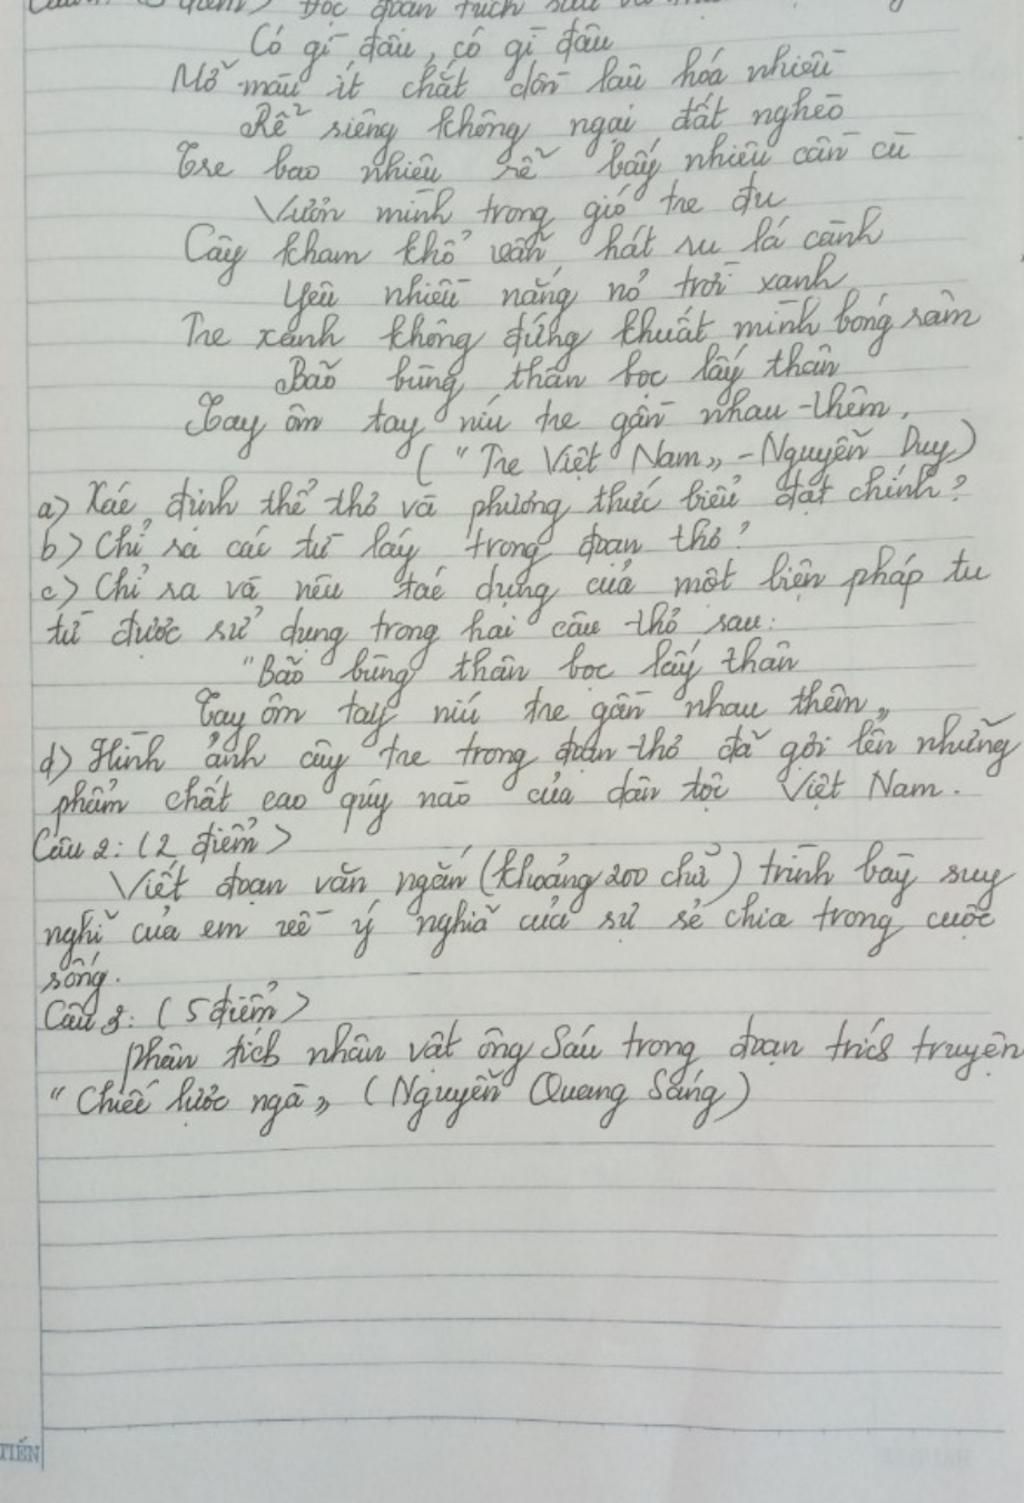 điểm) Đọc đoạn trích sau và
Có gì đâu, có gì đâu
Mỡ màu ít chất dồn lâu hoá nhiều
Rễ siêng không ngại đất nghèo
Tre bao nhiêu rễ bấy nhiêu cần cù
Vươn mình trong gió tre đu
Cây kham khổ vẫn hát ru lá cành
Yêu nhiều nắng nỏ trời xanh
Tre xanh không đứng khuất mình bóng râm
Bão bùng thân bọc lấy thân
Tay ôm tay níu tre gần nhau thêm.
("Tre Việt Nam" - Nguyễn Duy)
a) Xác định thể thơ và phương thức biểu đạt chính?
b) Chỉ ra các từ láy trong đoạn thơ?
c) Chỉ ra và nêu tác dụng của một biện pháp tu
từ được sử dụng trong hai câu thơ sau:
"Bão bùng thân bọc lấy thân
Tay ôm tay níu tre gần nhau thêm"
d) Hình ảnh cây tre trong đoạn thơ đã gợi lên những
phẩm chất cao quý nào của dân tộc Việt Nam.
Câu 2: (2 điểm)
Viết đoạn văn ngắn (khoảng 200 chữ) trình bày suy
nghĩ của em về ý nghĩa của sự sẻ chia trong cuộc
sống.
Câu 3: (5 điểm)
Phân tích nhân vật ông Sáu trong đoạn trích truyện
"Chiếc lược ngà" (Nguyễn Quang Sáng)
TIẾN